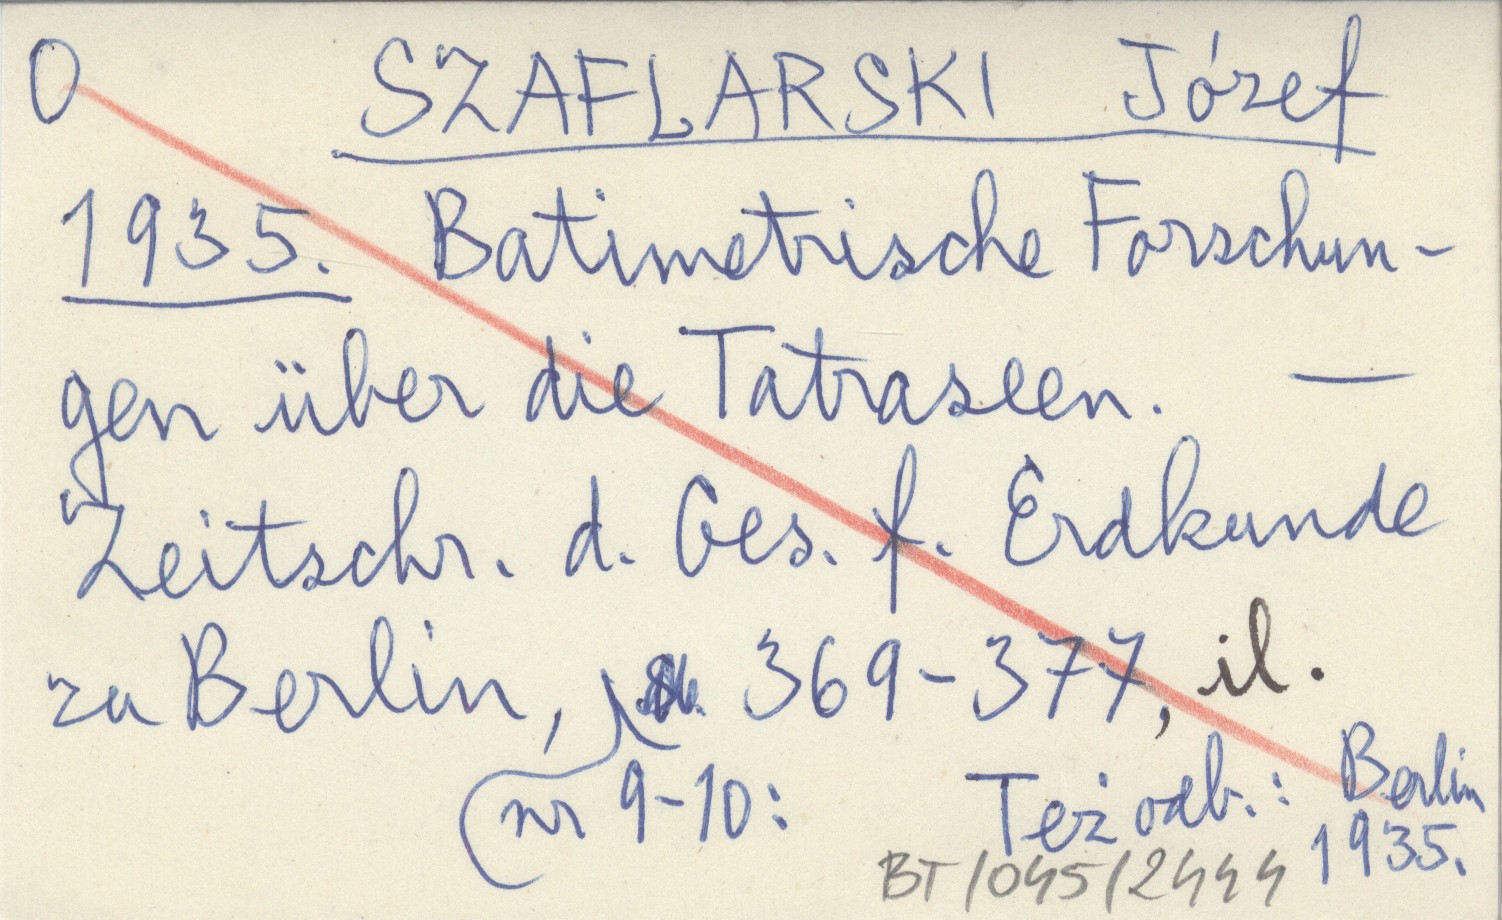 O SZAFLARSKI Józef
1935. Batimetrische Forschun-
gen über die Tatraseen. —
Zeitschr. d. Ges. f. Erdkunde
zu Berlin, 369-377, il.
nr 9-10: Też odb.: Berlin
1935.
BT/045/2444